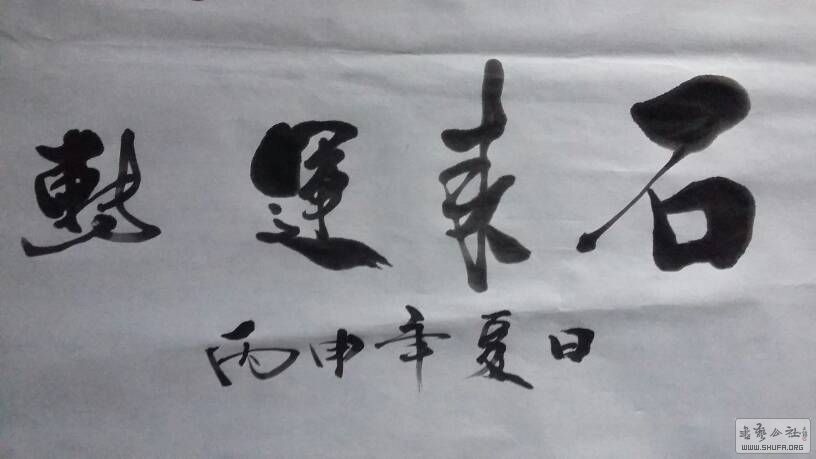 石来運轉
丙申年夏日
书艺公社
WWW.SHUFA.ORG